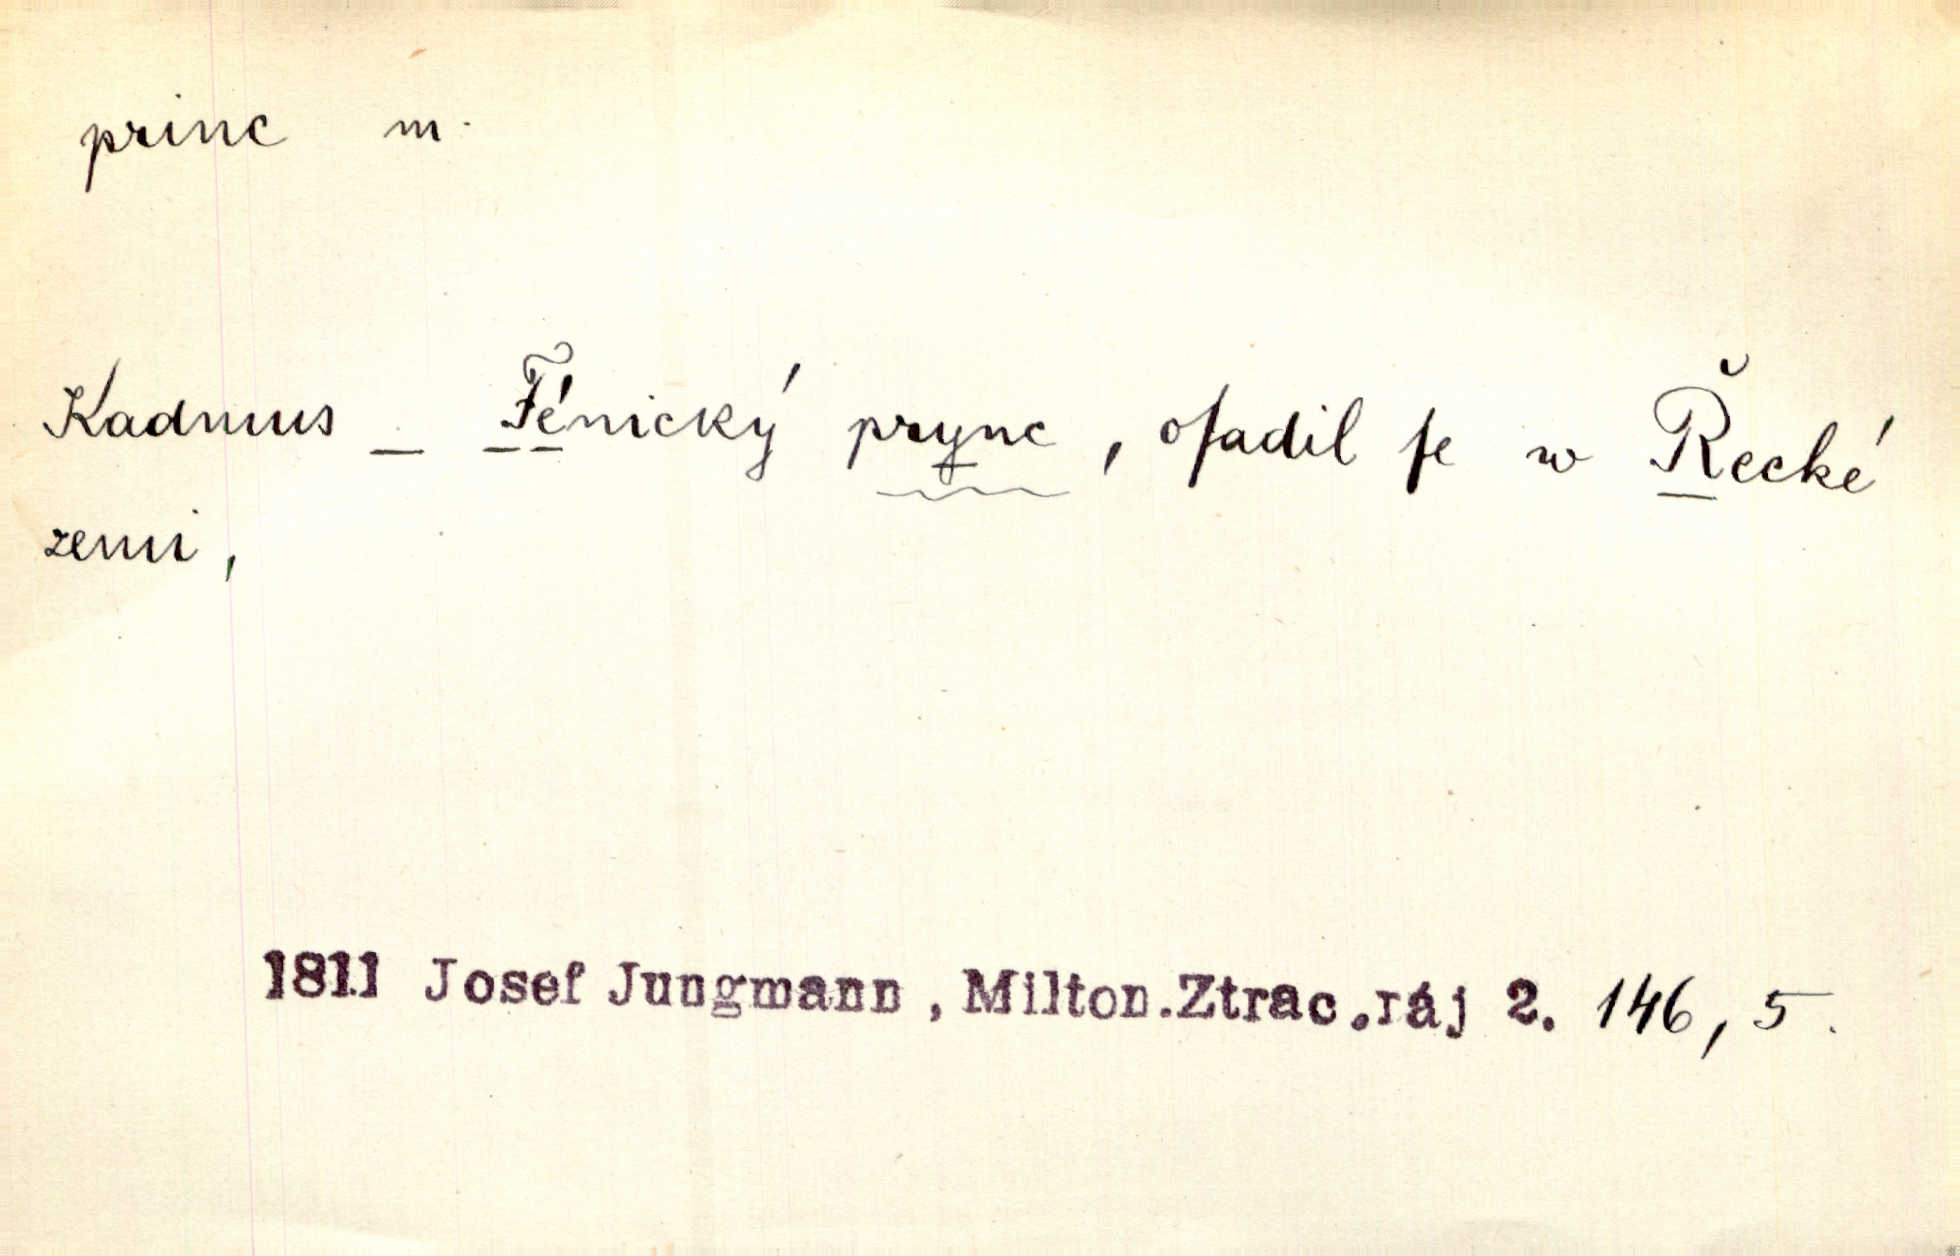 princ m.
Kadmus _ Fénický prync, oſadil ſe w Řecké
zemi,
1811 Josef Jungmann, Milton.Ztrac.ráj 2. 146, 5.